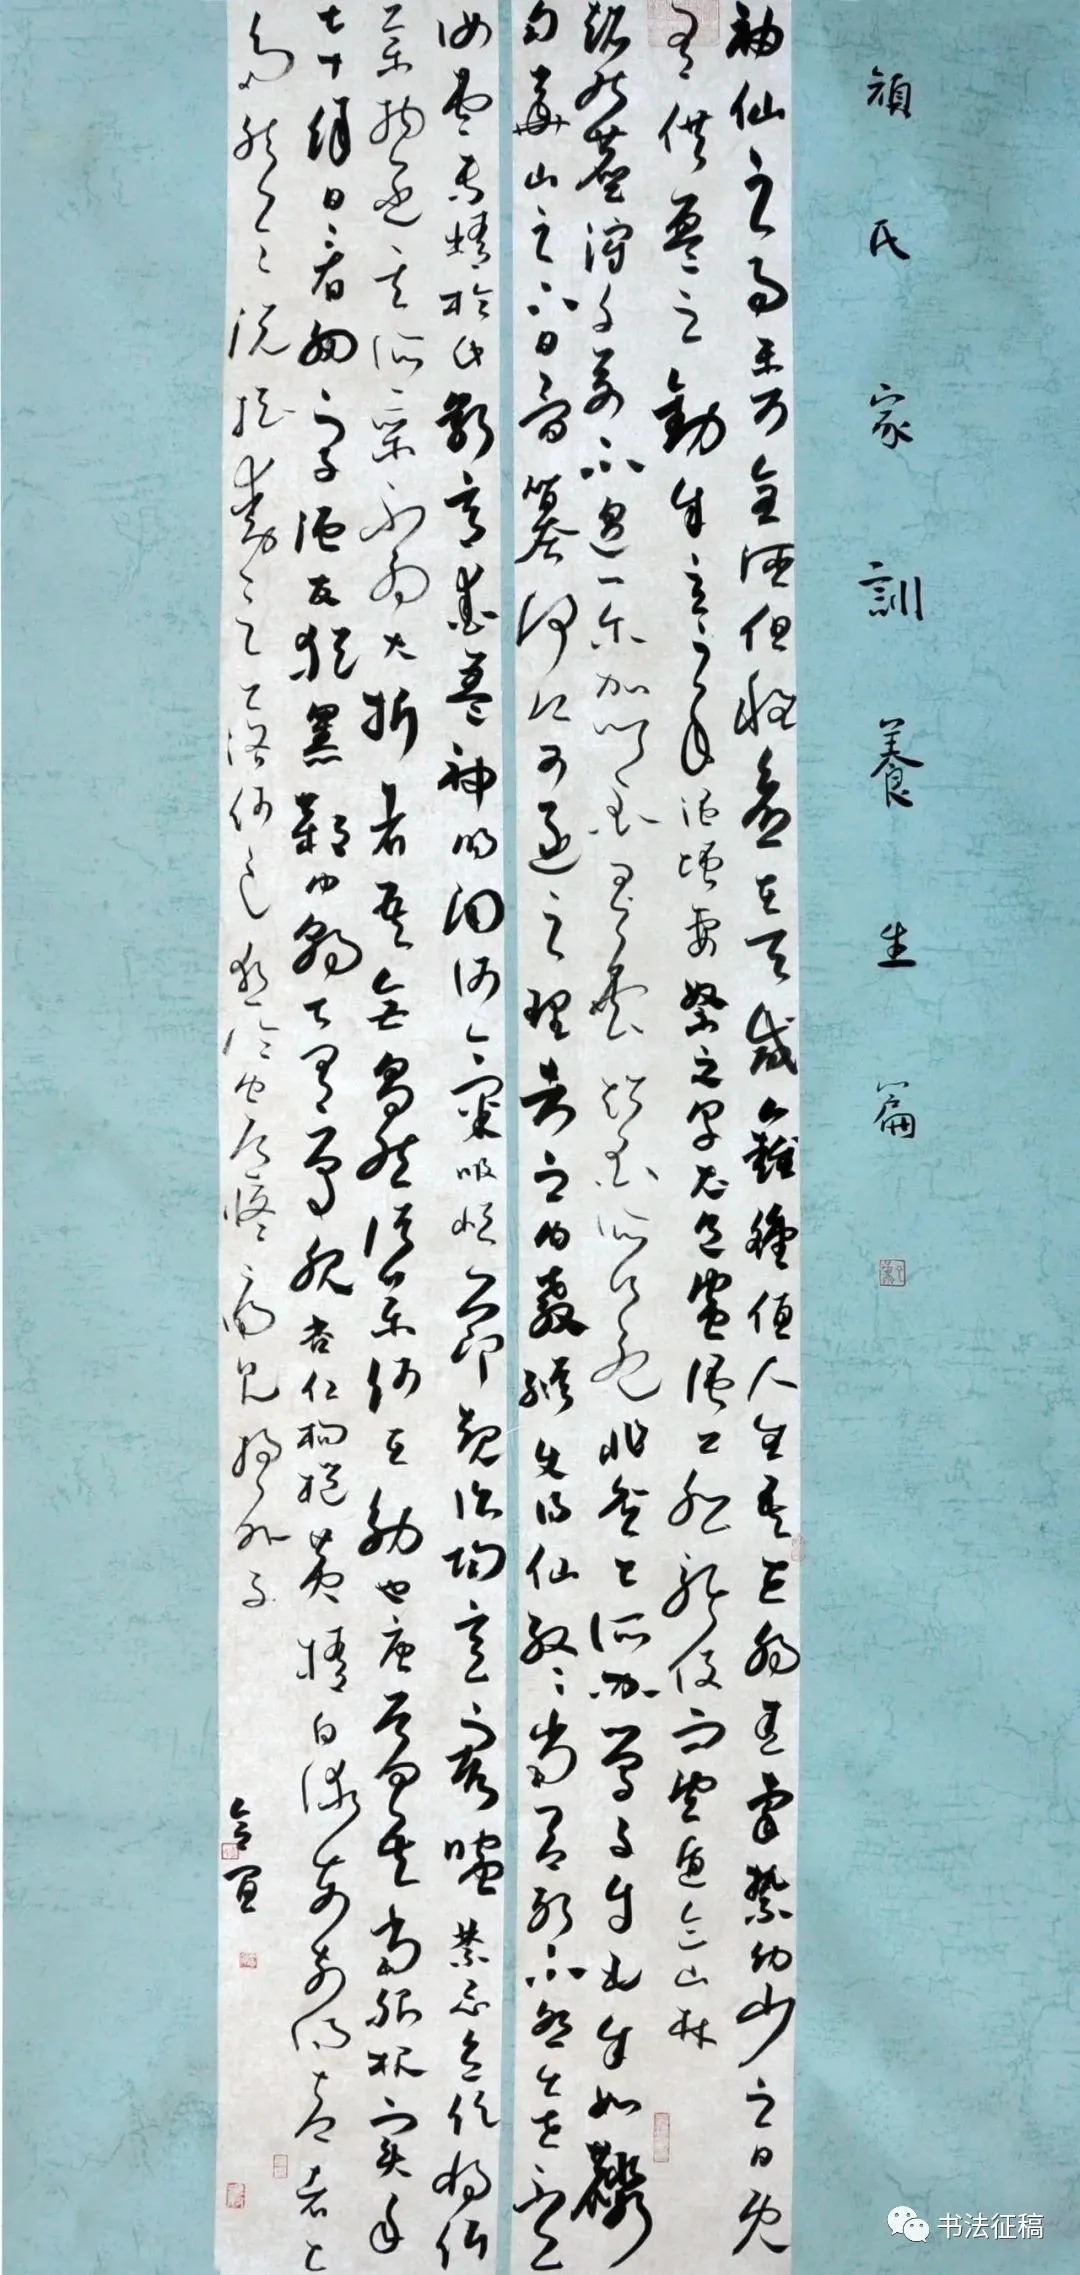 顏氏家訓養生篇
神仙之事未可全誣但性命在天或難鍾值人生居世觸途牽縶幼少之日既
有供養之勤成立之年便增妻孥之累衣食資須公私驅役而望遁跡山林
超然塵滓千萬不過一爾加以金玉之費爐器所須益非貧士所辦學者如牛毛成如麟
角華山之下白骨如莽何有可遂之理考之內教縱使得仙終當有死不能出世不願
汝曹專精於此若其愛養神明調護氣息慎節起臥均適寒暄禁忌食飲將餌
藥物遂其所稟不為夭折者吾無間然諸藥餌法不廢世務也庾肩吾常服槐實年
七十餘目看細字鬚髮猶黑鄴中朝士有單服杏仁枸杞黃精白朮車前得益者甚
多能一一說搖動欲落熱冷皆疼痛見抱朴子
书法征稿